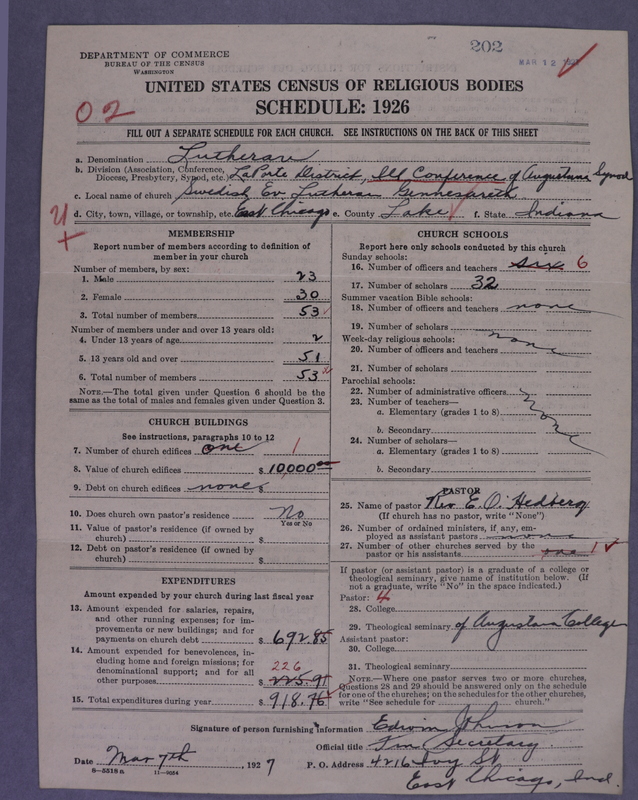 202
MAR 12 1927
DEPARTMENT OF COMMERCE
BUREAU OF THE CENSUS
WASHINGTON
UNITED STATES CENSUS OF RELIGIOUS BODIES
SCHEDULE: 1926
02
FILL OUT A SEPARATE SCHEDULE FOR EACH CHURCH. SEE INSTRUCTIONS ON THE BACK OF THIS SHEET
a. Denomination Lutheran
b. Division (Association, Conference, Diocese, Presbytery, Synod, etc.) LaPorte District, Ill Conference of Augustana Synod
c. Local name of church Swedish Ev. Lutheran Gennesareth
d. City, town, village, or township, etc. East Chicago e. County Lake f. State Indiana
MEMBERSHIP
Report number of members according to definition of
member in your church
Number of members, by sex:
1. Male 23
2. Female 30
3. Total number of members 53
Number of members under and over 13 years old:
4. Under 13 years of age 2
5. 13 years old and over 51
6. Total number of members 53
NOTE.—The total given under Question 6 should be
same as the total of males and females given under Question 3.
CHURCH BUILDINGS
See instructions, paragraphs 10 to 12
7. Number of church edifices one 1
8. Value of church edifices $ 10,000 00
9. Debt on church edifices none $
10. Does church own pastor's residence No
Yes or No
11. Value of pastor's residence (if owned by
church) $
12. Debt on pastor's residence (if owned by
church) $
EXPENDITURES
Amount expended by your church during last fiscal year
13. Amount expended for salaries, repairs,
and other running expenses; for im-
provements or new buildings; and for
payments on church debt $ 692.85
14. Amount expended for benevolences, in-
cluding home and foreign missions; for
denominational support; and for all
226
other purposes $ 225.91
15. Total expenditures during year $ 918.76
CHURCH SCHOOLS
Report here only schools conducted by this church
Sunday schools:
16. Number of officers and teachers six 6
17. Number of scholars 32
Summer vacation Bible schools:
18. Number of officers and teachers none
19. Number of scholars
Week-day religious schools:
20. Number of officers and teachers none
21. Number of scholars
Parochial schools:
22. Number of administrative officers
23. Number of teachers—
a. Elementary (grades 1 to 8) None
b. Secondary
24. Number of scholars—
a. Elementary (grades 1 to 8)
b. Secondary
PASTOR
25. Name of pastor Rev E. O. Hedberg
(If church has no pastor, write "None")
26. Number of ordained ministers, if any, em-
ployed as assistant pastors none
27. Number of other churches served by the
pastor or his assistants one 1
If pastor (or assistant pastor) is a graduate of a college or
theological seminary, give name of institution below. (If
not a graduate, write "No" in the space indicated.)
Pastor: 4
28. College
29. Theological seminary of Augustana College
Assistant pastor:
30. College
31. Theological seminary
NOTE.—Where one pastor serves two or more churches,
Questions 28 and 29 should be answered only on the schedule
for one of the churches; on the schedules for the other churches,
write "See schedule for church."
Signature of person furnishing information Edwin Johnson
Official title Fin Secretary
Date Mar 7th, 1927 P. O. Address 4216 Ivy St
8-5318a 11-9054 East Chicago, Ind.